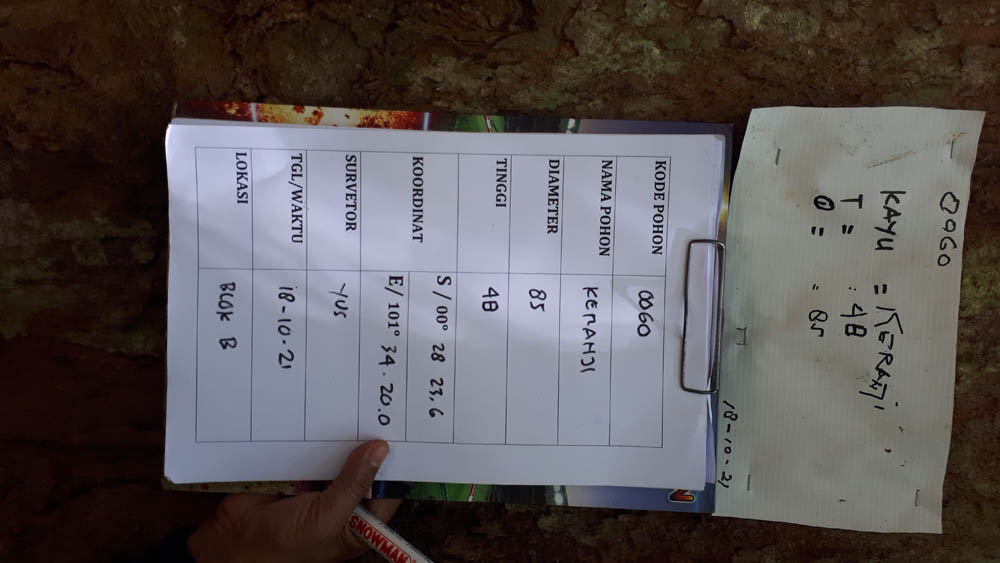 0060
KAYU = KERANJI
T = : 48
Ø = = 85
18-10-21
KODE POHON 0060
NAMA POHON KERANJI
DIAMETER 85
TINGGI 48
KOORDINAT
S / 00° 28 23.6
E/ 101° 34.20.0
SURVETOR YUS
TGL/WAKTU 18-10-21
LOKASI BLOK B
SNOWMAN